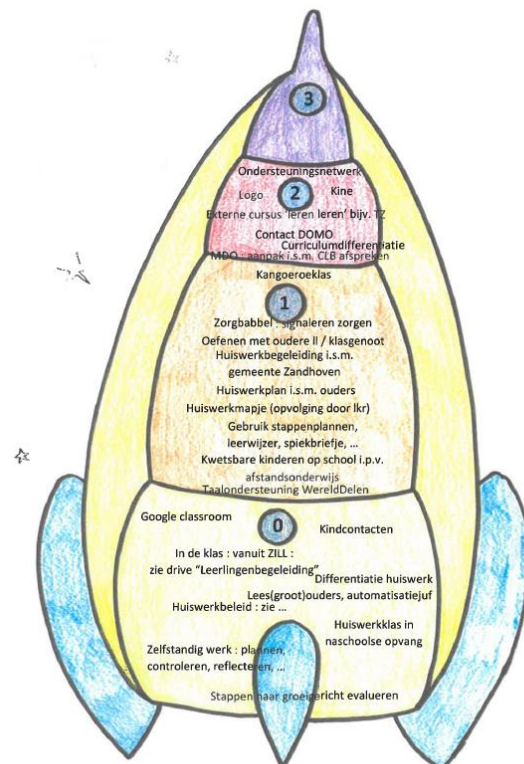 3
Ondersteuningsnetwerk
2
Logo
Kine
Externe cursus 'leren leren' bijv. TZ
Contact DOMO
Curriculumdifferentiatie
MDO : aanpak i.s.m. CLB afspreken
Kangoeroeklas
1
Zorgbabbel : signaleren zorgen
Oefenen met oudere ll / klasgenoot
Huiswerkbegeleiding i.s.m.
gemeente Zandhoven
Huiswerkplan i.s.m. ouders
Huiswerkmapje (opvolging door lkr)
Gebruik stappenplannen,
leerwijzer, spiekbriefje, ...
Kwetsbare kinderen op school i.p.v.
afstandsonderwijs
Taalondersteuning WereldDelen
Google classroom
0
Kindcontacten
In de klas : vanuit ZILL :
zie drive "Leerlingenbegeleiding"
Differentiatie huiswerk
Lees(groot)ouders, automatisatiejuf
Huiswerkbeleid : zie ...
Huiswerkklas in
naschoolse opvang
Zelfstandig werk : plannen,
controleren, reflecteren, ...
Stappen naar groeigericht evalueren